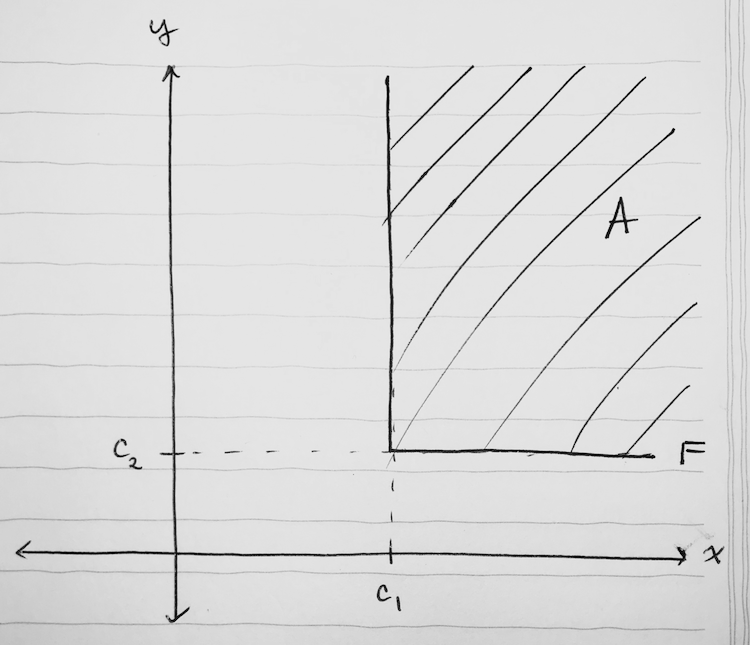 y
A
C₂
F
x
C₁